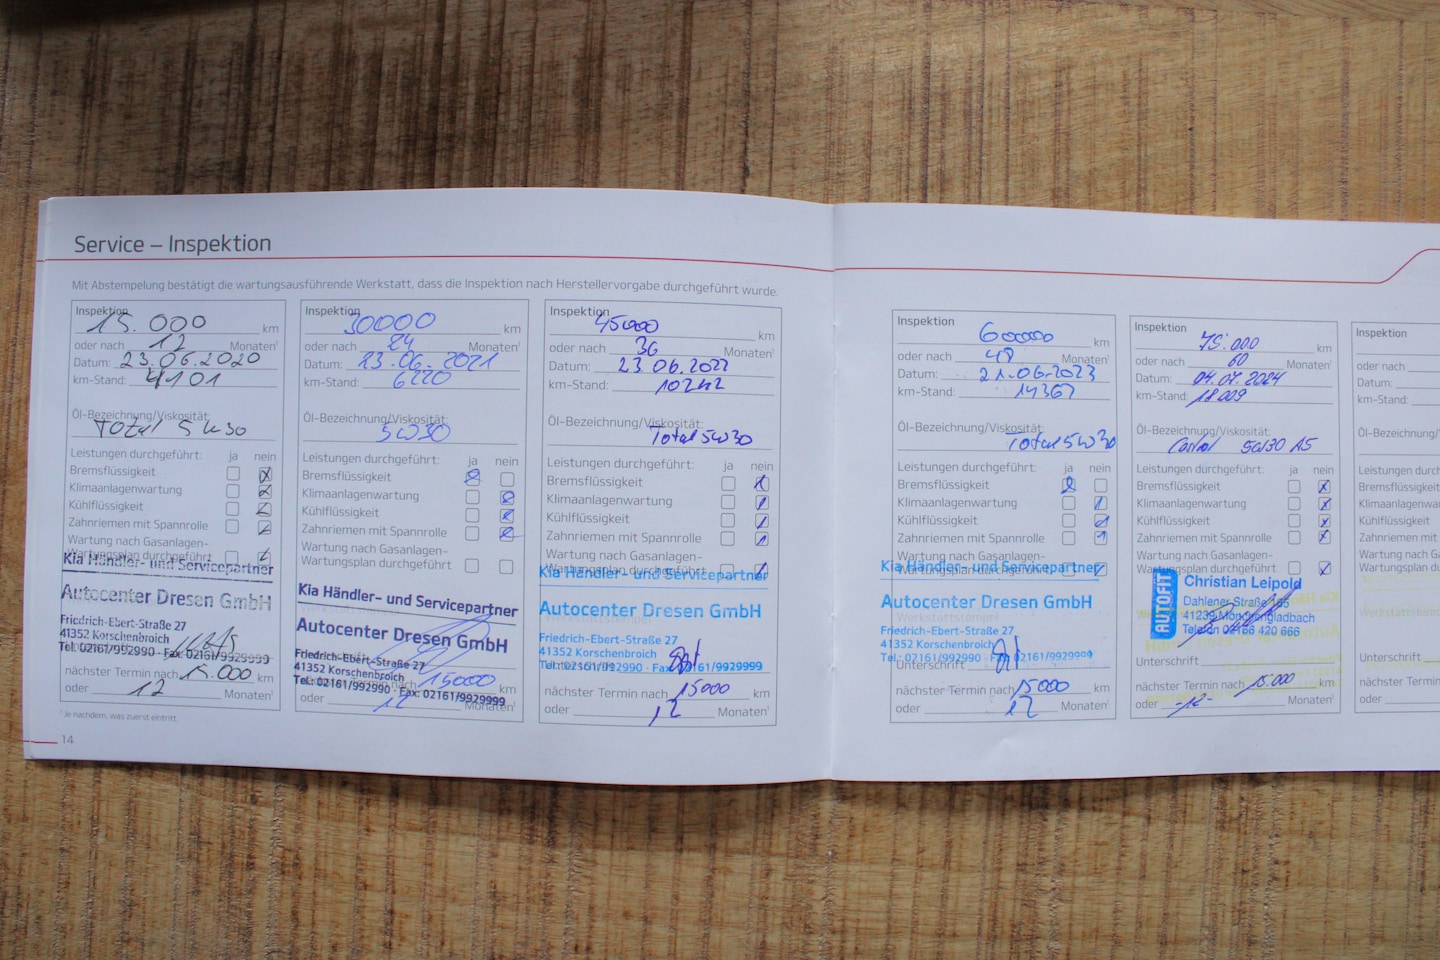 Service – Inspektion
Mit Abstempelung bestätigt die wartungsausführende Werkstatt, dass die Inspektion nach Herstellervorgabe durchgeführt wurde.
Inspektion
15.000 km
oder nach 12 Monaten¹
Datum: 23.06.2020
km-Stand: 4101
Öl-Bezeichnung/Viskosität:
Total 5W30
Leistungen durchgeführt: ja nein
Bremsflüssigkeit
Klimaanlagenwartung
Kühlflüssigkeit
Zahnriemen mit Spannrolle
Wartung nach Gasanlagen-
Wartungsplan durchgeführt
Kia Händler- und Servicepartner
Autocenter Dresen GmbH
Friedrich-Ebert-Straße 27
41352 Korschenbroich
Tel. 02161/992990 - Fax: 02161/9929999
nächster Termin nach 15.000 km
oder 12 Monaten¹
¹ Je nachdem, was zuerst eintritt.
14
Inspektion
30000 km
oder nach 24 Monaten¹
Datum: 23.06.2021
km-Stand: 6220
Öl-Bezeichnung/Viskosität:
5W30
Leistungen durchgeführt: ja nein
Bremsflüssigkeit
Klimaanlagenwartung
Kühlflüssigkeit
Zahnriemen mit Spannrolle
Wartung nach Gasanlagen-
Wartungsplan durchgeführt
Kia Händler- und Servicepartner
Autocenter Dresen GmbH
Friedrich-Ebert-Straße 27
41352 Korschenbroich
Tel.: 02161/992990 - Fax: 02161/9929999
15000 km
oder 12 Monaten¹
Inspektion
45000 km
oder nach 36 Monaten¹
Datum: 23.06.2022
km-Stand: 10242
Öl-Bezeichnung/Viskosität:
Total 5W30
Leistungen durchgeführt: ja nein
Bremsflüssigkeit
Klimaanlagenwartung
Kühlflüssigkeit
Zahnriemen mit Spannrolle
Wartung nach Gasanlagen-
Wartungsplan durchgeführt
Kia Händler- und Servicepartner
Autocenter Dresen GmbH
Werkstattstempel
Friedrich-Ebert-Straße 27
41352 Korschenbroich
Tel.: 02161/992990 - Fax: 02161/9929999
nächster Termin nach 15000 km
oder 12 Monaten¹
Inspektion
600000 km
oder nach 48 Monaten¹
Datum: 21.06.2023
km-Stand: 14367
Öl-Bezeichnung/Viskosität:
Total 5W30
Leistungen durchgeführt: ja nein
Bremsflüssigkeit
Klimaanlagenwartung
Kühlflüssigkeit
Zahnriemen mit Spannrolle
Wartung nach Gasanlagen-
Wartungsplan durchgeführt
Kia Händler- und Servicepartner
Autocenter Dresen GmbH
Werkstattstempel
Friedrich-Ebert-Straße 27
41352 Korschenbroich
Tel.: 02161/992990 - Fax: 02161/9929999
Unterschrift
nächster Termin nach 15000 km
oder 12 Monaten¹
Inspektion
75.000 km
oder nach 60 Monaten¹
Datum: 04.07.2024
km-Stand: 18009
Öl-Bezeichnung/Viskosität:
5W30 A5
Leistungen durchgeführt: ja nein
Bremsflüssigkeit
Klimaanlagenwartung
Kühlflüssigkeit
Zahnriemen mit Spannrolle
Wartung nach Gasanlagen-
Wartungsplan durchgeführt
AUTOFIT
Christian Leipold
Dahlener Straße
41239 Mönchengladbach
Telefon 02166 420 666
Unterschrift
nächster Termin nach 15.000 km
oder -12- Monaten¹
Inspektion
oder nach
Datum:
km-Stand:
Öl-Bezeichnung/
Leistungen durch
Bremsflüssigkeit
Klimaanlagenwart
Kühlflüssigkeit
Zahnriemen mit
Wartung nach Ga
Wartungsplan du
Unterschrift
nächster Termin
oder